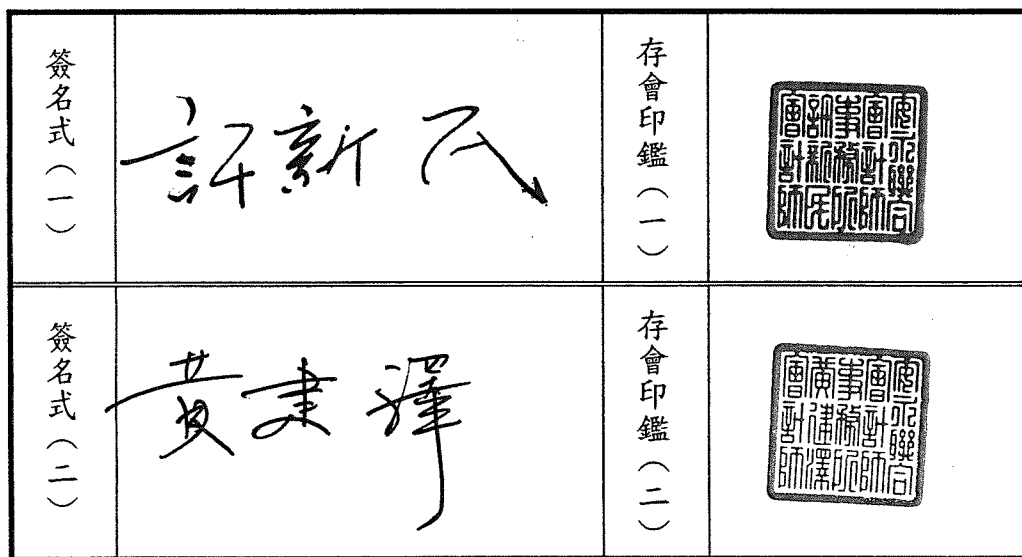 簽名式（一）
許新民
存會印鑑（一）
安永聯合
會計師
事務所
許新民
會計師
簽名式（二）
黃建澤
存會印鑑（二）
安永聯合
會計師
事務所
黃建澤
會計師